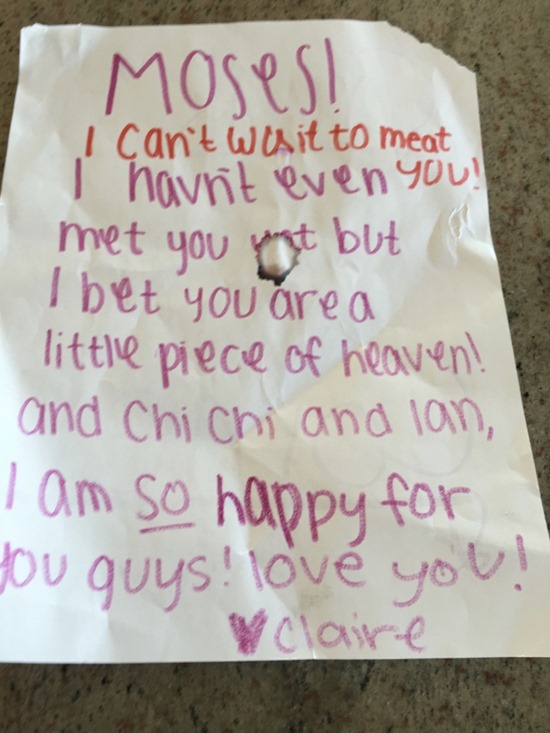 MOSES!
I Can't wait to meat
YOU!
I havn't even
met you yet but
I bet you are a
little piece of heaven!
and Chi Chi and Ian,
I am so happy for
you guys! love you!
♥ Claire